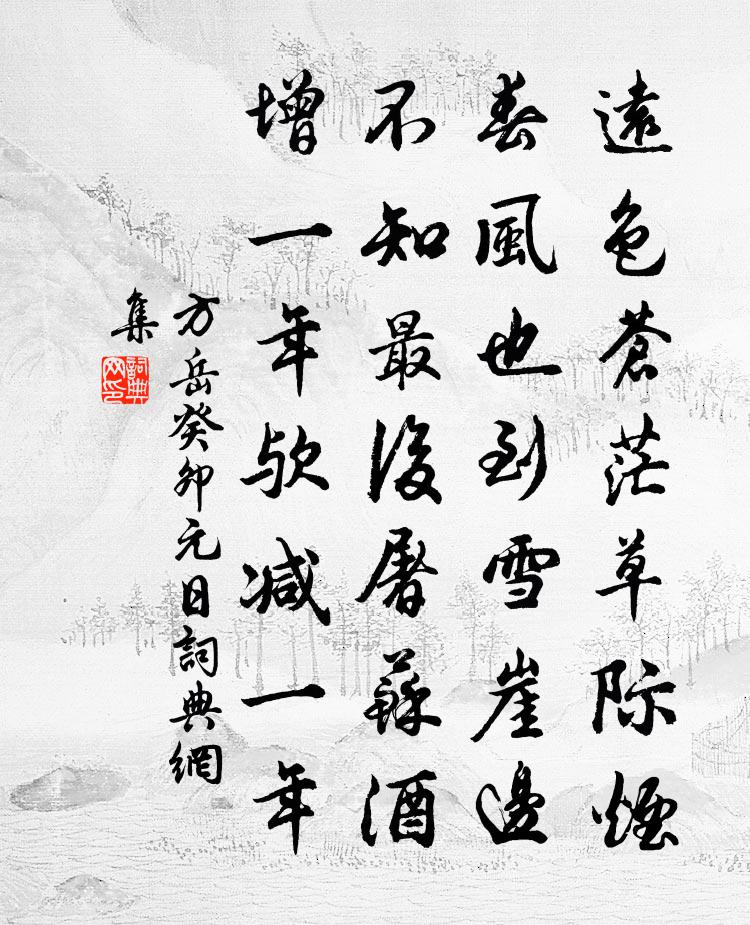 遠色蒼茫草际煙
春風也到雪崖邊
不知最後屠蘇酒
增一年欤减一年
方岳癸卯元日詞典網
集
詞典网印